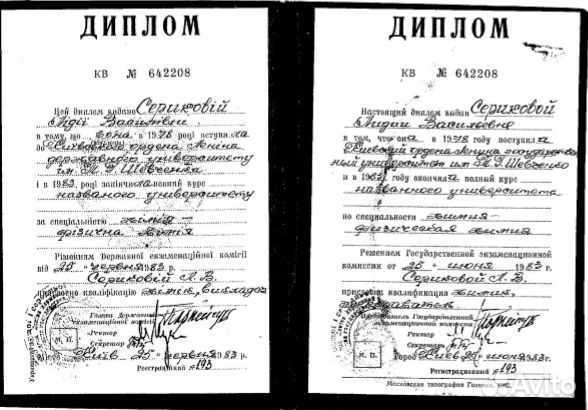 ДИПЛОМ
КВ № 642208
Цей диплом видано Сериковій
Лідії Василівні
в тому, що вона в 1978 році вступила
до Київського ордена Леніна
державного університету
ім. Т. Г. Шевченка
і в 1983 році закінчила повний курс
названого університету
за спеціальністю хімія –
фізична хімія
Рішенням Державної екзаменаційної комісії
від 25 " червня 1983 р.
Сериковій Л. В.
кваліфікацію хімік, викладач
Голова Державної
екзаменаційної комісії
Ректор
Секретар
М. П.
Київ 25 " червня 1983 р.
Реєстраційний № 193
ДИПЛОМ
КВ № 642208
Настоящий диплом выдан Сериковой
Лидии Васильевне
в том, что она в 1978 году поступила
в Киевский ордена Ленина государствен-
ный университет им. Т. Г. Шевченко
и в 1983 году окончила полный курс
названного университета
по специальности химия –
физическая химия
Решением Государственной экзаменационной
комиссии от 25 " июня 1983 г.
Сериковой Л. В.
присвоена квалификация химик,
преподаватель
Председатель Государственной
экзаменационной комиссии
Ректор
Секретарь
М. П.
Город Киев 25 " июня 1983 г.
Регистрационный № 193
Московская типография Гознака. 1982.
Avito